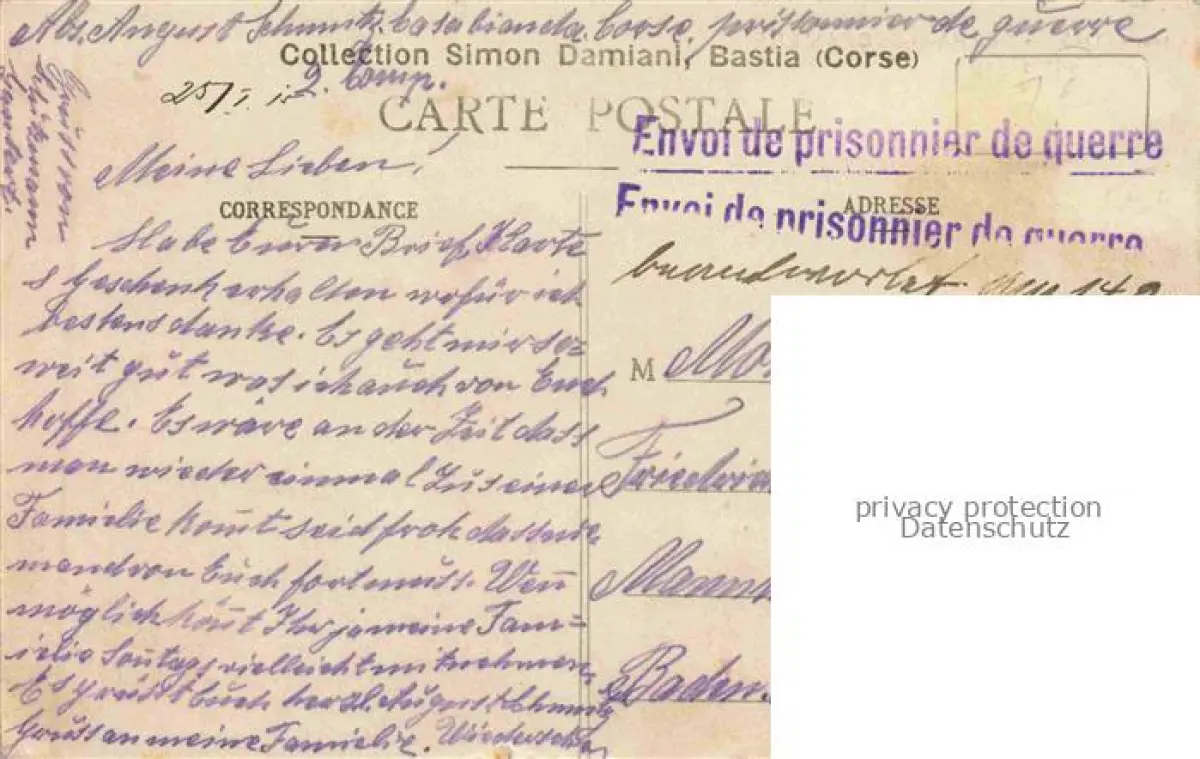 Abs. August Schmutz. Casabianda. Corse. prisonnier de guerre
Collection Simon Damiani, Bastia (Corse)
2. Comp.
CARTE POSTALE
Envoi de prisonnier de guerre
Envoi de prisonnier de guerre
CORRESPONDANCE
ADRESSE
Meine Lieben!
Habe Euern Brief, Karte
s Geschenk erhalten wofür ich
bestens danke. Es geht mir so=
weit gut was ich auch von Euch
hoffe. Es wäre an der Zeit dass
man wieder einmal zu seiner
Familie kom̄t seid froh dass nie
mand von Euch fort muss. Wen̄
möglich kön̄t Ihr ja meine Fam=
ielie Son̄tags vielleicht mitnehmen.
Es grüsst Euch herzl. August Schmutz
Gruss an meine Familie. Wiedersehn
Grüsst von
Schürmann
beantwortet
M
Friedric
Mann
Baden.
privacy protection
Datenschutz